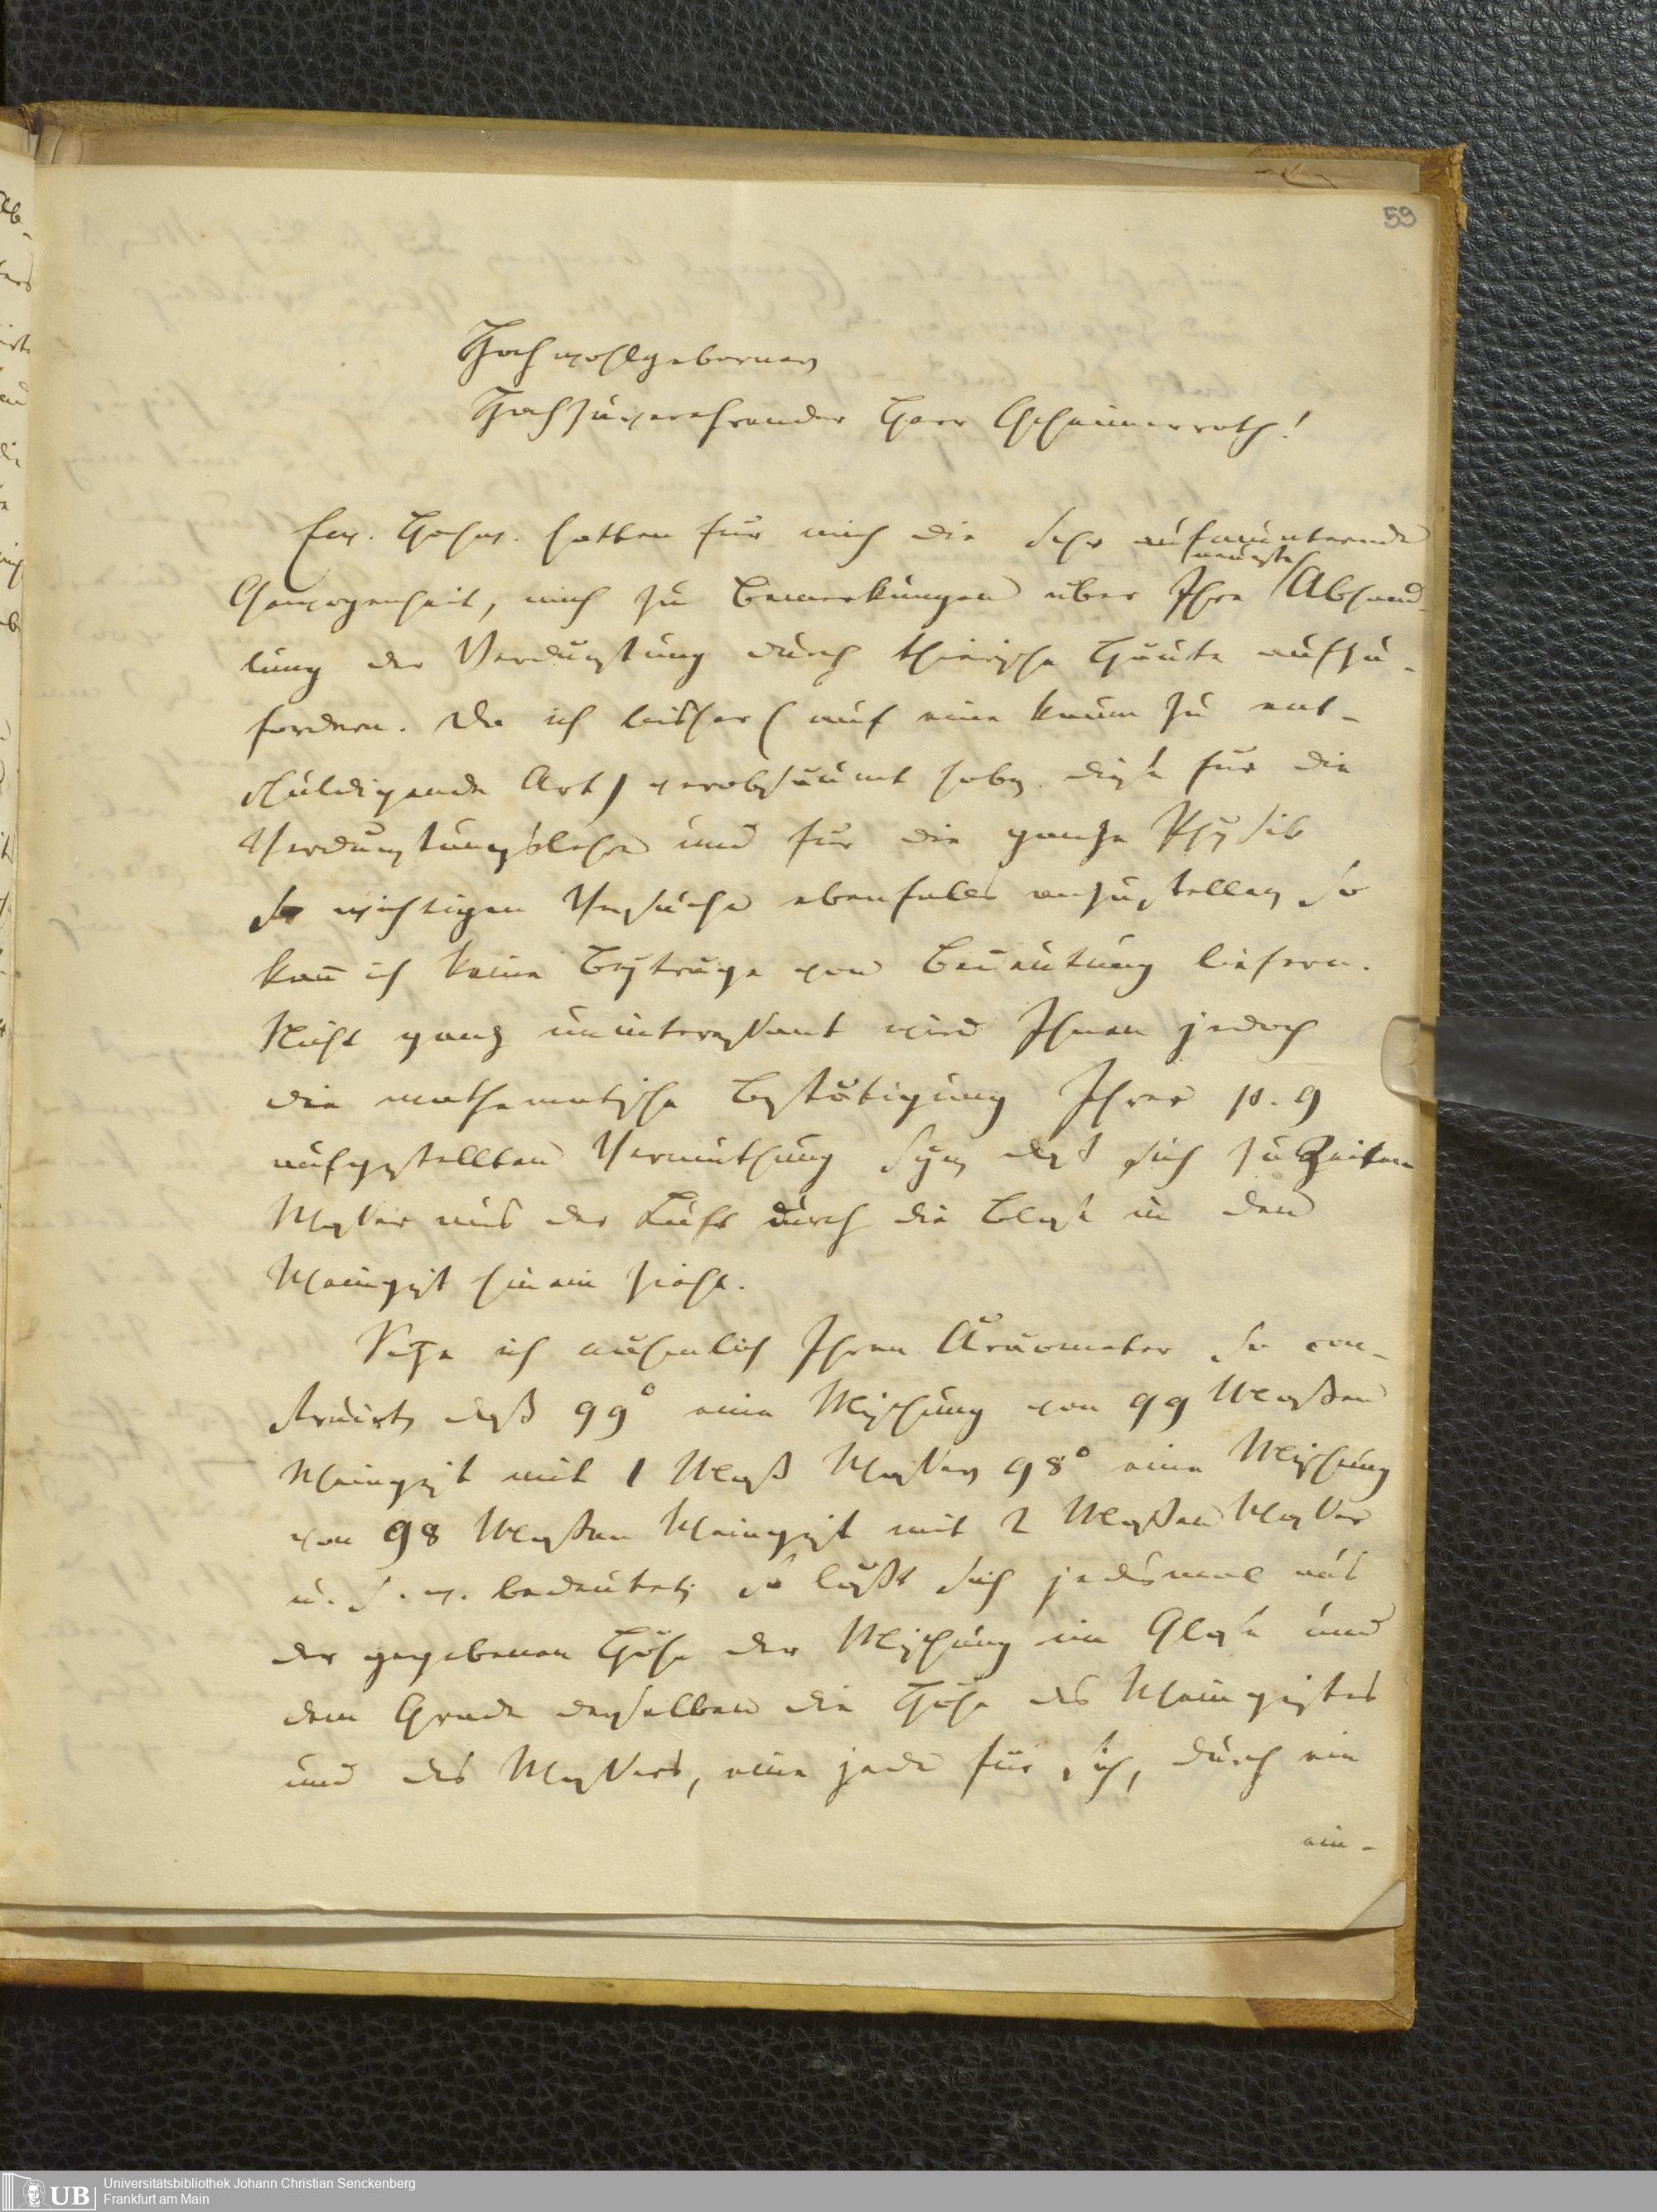 59
Hochwohlgeborner
Hochzuverehrender Herr Geheimerrath!
Ew. Hochw. hatten für mich die sehr aufmunternde
neueste
Gewogenheit, mich zu Bemerkungen über Ihre Abhand-
lung der Verdunstung durch thierische Häute aufzu-
fordern. Da ich leider (auf eine kaum zu ent-
schuldigende Art) verabsäumt habe diese für die
Verdunstungslehre und für die ganze Physik
so wichtigen Versuche ebenfalls anzustellen, so
kann ich keine Beyträge von Bedeutung liefern.
Nicht ganz uninteressant wird Ihnen jedoch
die mathematische Bestätigung Ihrer p. 9
aufgestellten Vermuthung seyn daß sich zu Zeiten
Wasser aus der Luft durch die Blase in den
Weingeist hinein ziehe.
Setze ich nehmlich Ihren Aräometer so con-
struirt, daß 99° eine Mischung von 99 Maßen
Weingeist mit 1 Maß Wasser, 98° eine Mischung
von 98 Maßen Weingeist mit 2 Maßen Wasser
u. s. w. bedeutet; so läßt sich jedesmal aus
der gegebenen Höhe der Mischung im Glase und
dem Grade derselben die Höhe des Weingeistes
und des Wassers, eine jede für sich, durch ein
ein-
UB
Universitätsbibliothek Johann Christian Senckenberg
Frankfurt am Main